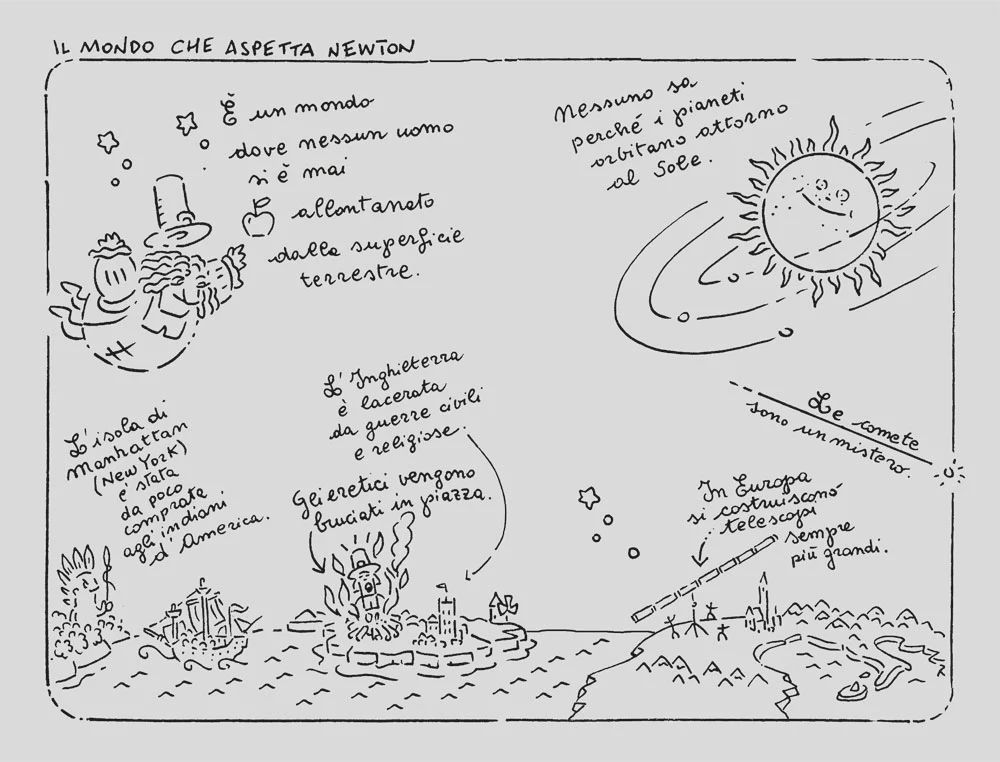 IL MONDO CHE ASPETTA NEWTON
È un mondo
dove nessun uomo
si è mai
allontanato
dalla superficie
terrestre.
Nessuno sa
perché i pianeti
orbitano attorno
al Sole.
L'Inghilterra
è lacerata
da guerre civili
e religiose.
Le comete
sono un mistero.
L'isola di
Manhattan
(New York)
è stata
da poco
comprata
agli indiani
d'America.
Gli eretici vengono
bruciati in piazza.
In Europa
si costruiscono
telescopi
sempre
più grandi.